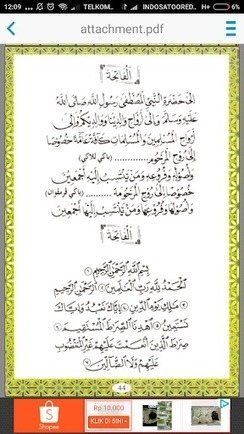 12:09 TELKOM... INDOSATOORED... H+ 6%
attachment.pdf
الفاتحة
إلى حضرة النبي المصطفى رسول الله صلى الله
عليه وسلم وآله وأزواجه
أرواح المسلمين والمسلمات كافة عامة خصوصا
إلى روح المرحوم............ (باكي للاكي)
وأصوله وفروعه ومن ينتسب إليه أجمعين
خصوصا إلى روح المرحومة ............ (باكي فرمفوان)
وأصولها وفروعها ومن ينتسب إليها أجمعين
الفاتحة
بسم الله الرحمن الرحيم ١
الحمد لله رب العالمين ٢ الرحمن الرحيم
٣ مالك يوم الدين ٤ إياك نعبد وإياك
نستعين ٥ اهدنا الصراط المستقيم ٦
صراط الذين أنعمت عليهم غير المغضوب
عليهم ولا الضالين ٧
44
Shopee
Rp 10.000
KLIK DI SINI ›